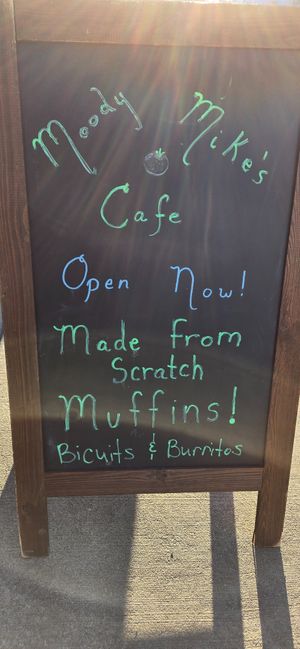 Moody Mike's
Cafe
Open Now!
Made from
Scratch
Muffins!
Bicuits & Burritos